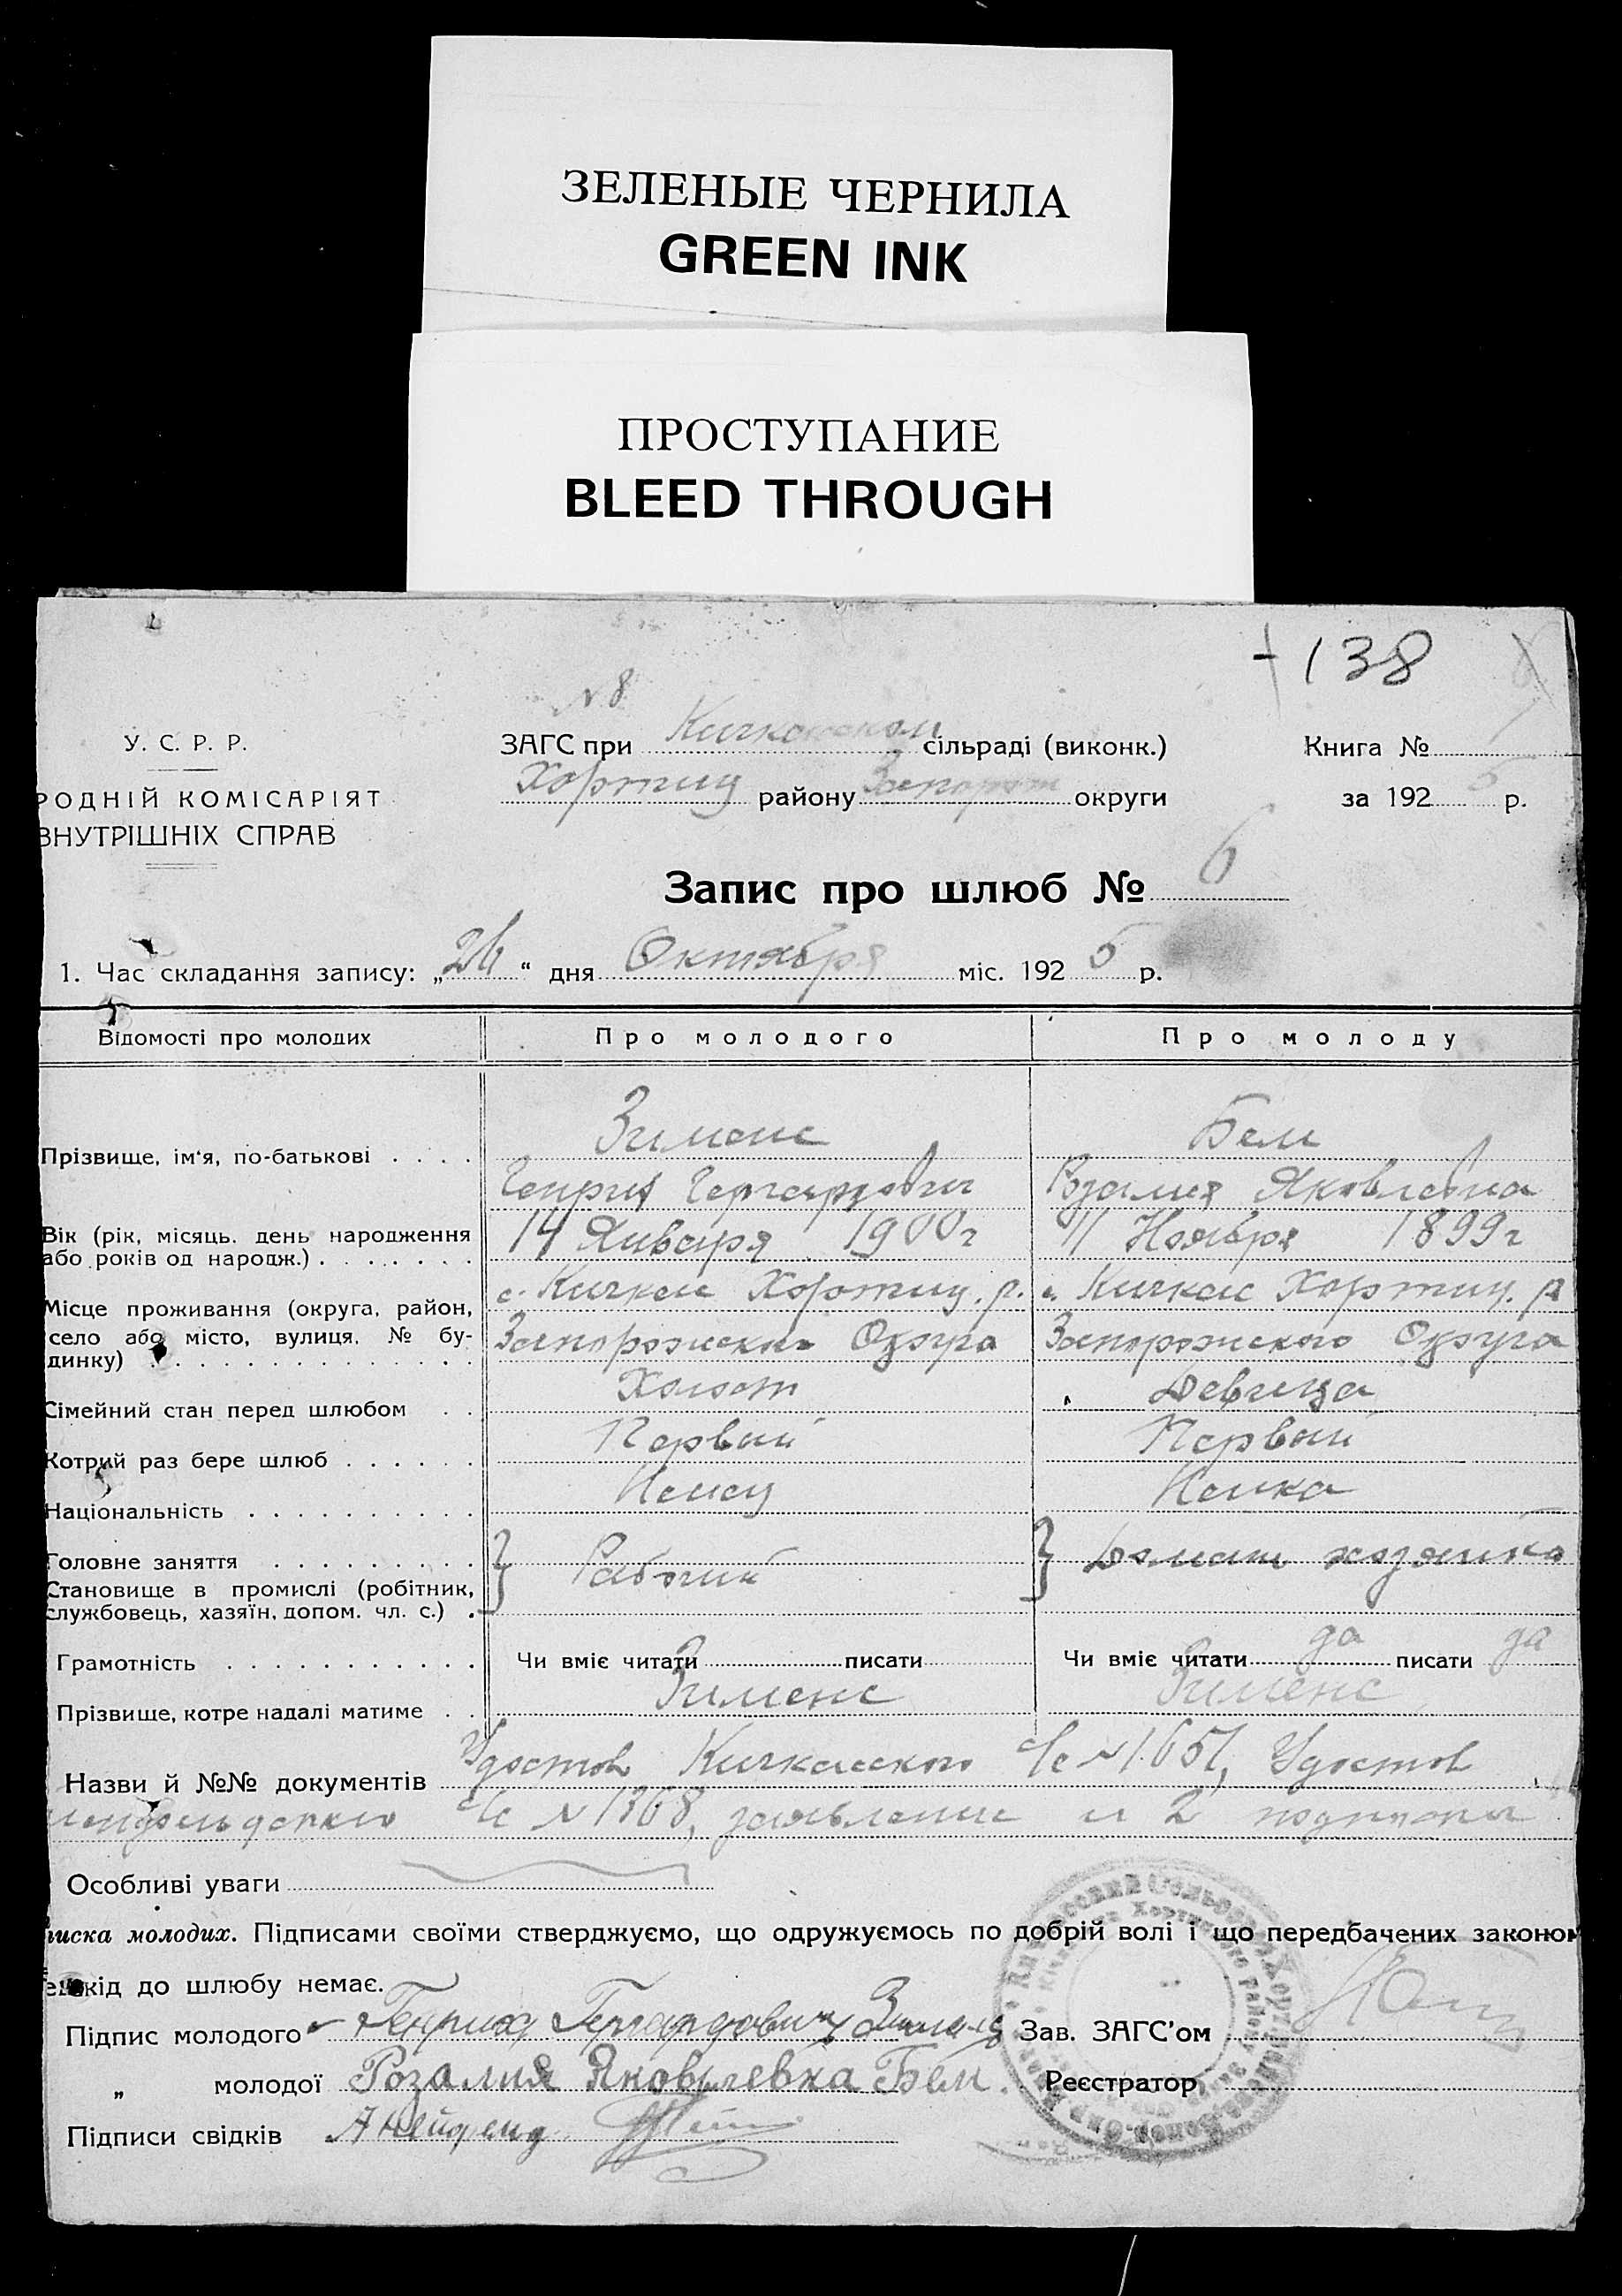 ЗЕЛЕНЫЕ ЧЕРНИЛА
GREEN INK
ПРОСТУПАНИЕ
BLEED THROUGH
138
№ 8
У. С. Р. Р.
РОДНІЙ КОМІСАРІЯТ
ВНУТРІШНІХ СПРАВ
ЗАГС при Кичкасском сільраді (виконк.)
Хортиц району Запорож округи
Книга №
за 1925 р.
Запис про шлюб № 6
1. Час складання запису: „26“ дня Октября міс. 1925 р.
Відомості про молодих Про молодого Про молоду
Прізвище, ім'я, по-батькові . . . . Зименс Бем
Генрих Гергардович Розалия Яковлевна
Вік (рік, місяць. день народження або років од народж.) . . . . . . . 14 Января 1900 г 11 Ноября 1899 г
Місце проживання (округа, район, село або місто, вулиця. № будинку) . . . . . . . . . . . . . . с. Кичкас Хортиц. р. с. Кичкас Хортиц. р
Запорожского Округа Запорожского Округа
Сімейний стан перед шлюбом . . Холост Девица
Котрий раз бере шлюб . . . . . . Первый Первый
Національність . . . . . . . . . . Немец Немка
Головне заняття . . . . . . . . .
Становище в промислі (робітник, службовець, хазяїн, допом. чл. с.) . } Рабочий } Домаш хозяйка
Грамотність . . . . . . . . . . . Чи вміє читати писати Чи вміє читати да писати да
Прізвище, котре надалі матиме . . Зименс Зименс
Назви й №№ документів Удостов Кичкасского С/с № 1651, Удостов
С/с № 1368, заявление и 2 подписки
Особливі уваги
писка молодих. Підписами своїми стверджуємо, що одружуємось по добрій волі і що передбачених законом
ешкід до шлюбу немає.
Підпис молодого Генрих Гергардович Зименс Зав. ЗАГС'ом
„ молодої Розалия Яковлевна Бем. Реєстратор
Підписи свідків А Нейфельд